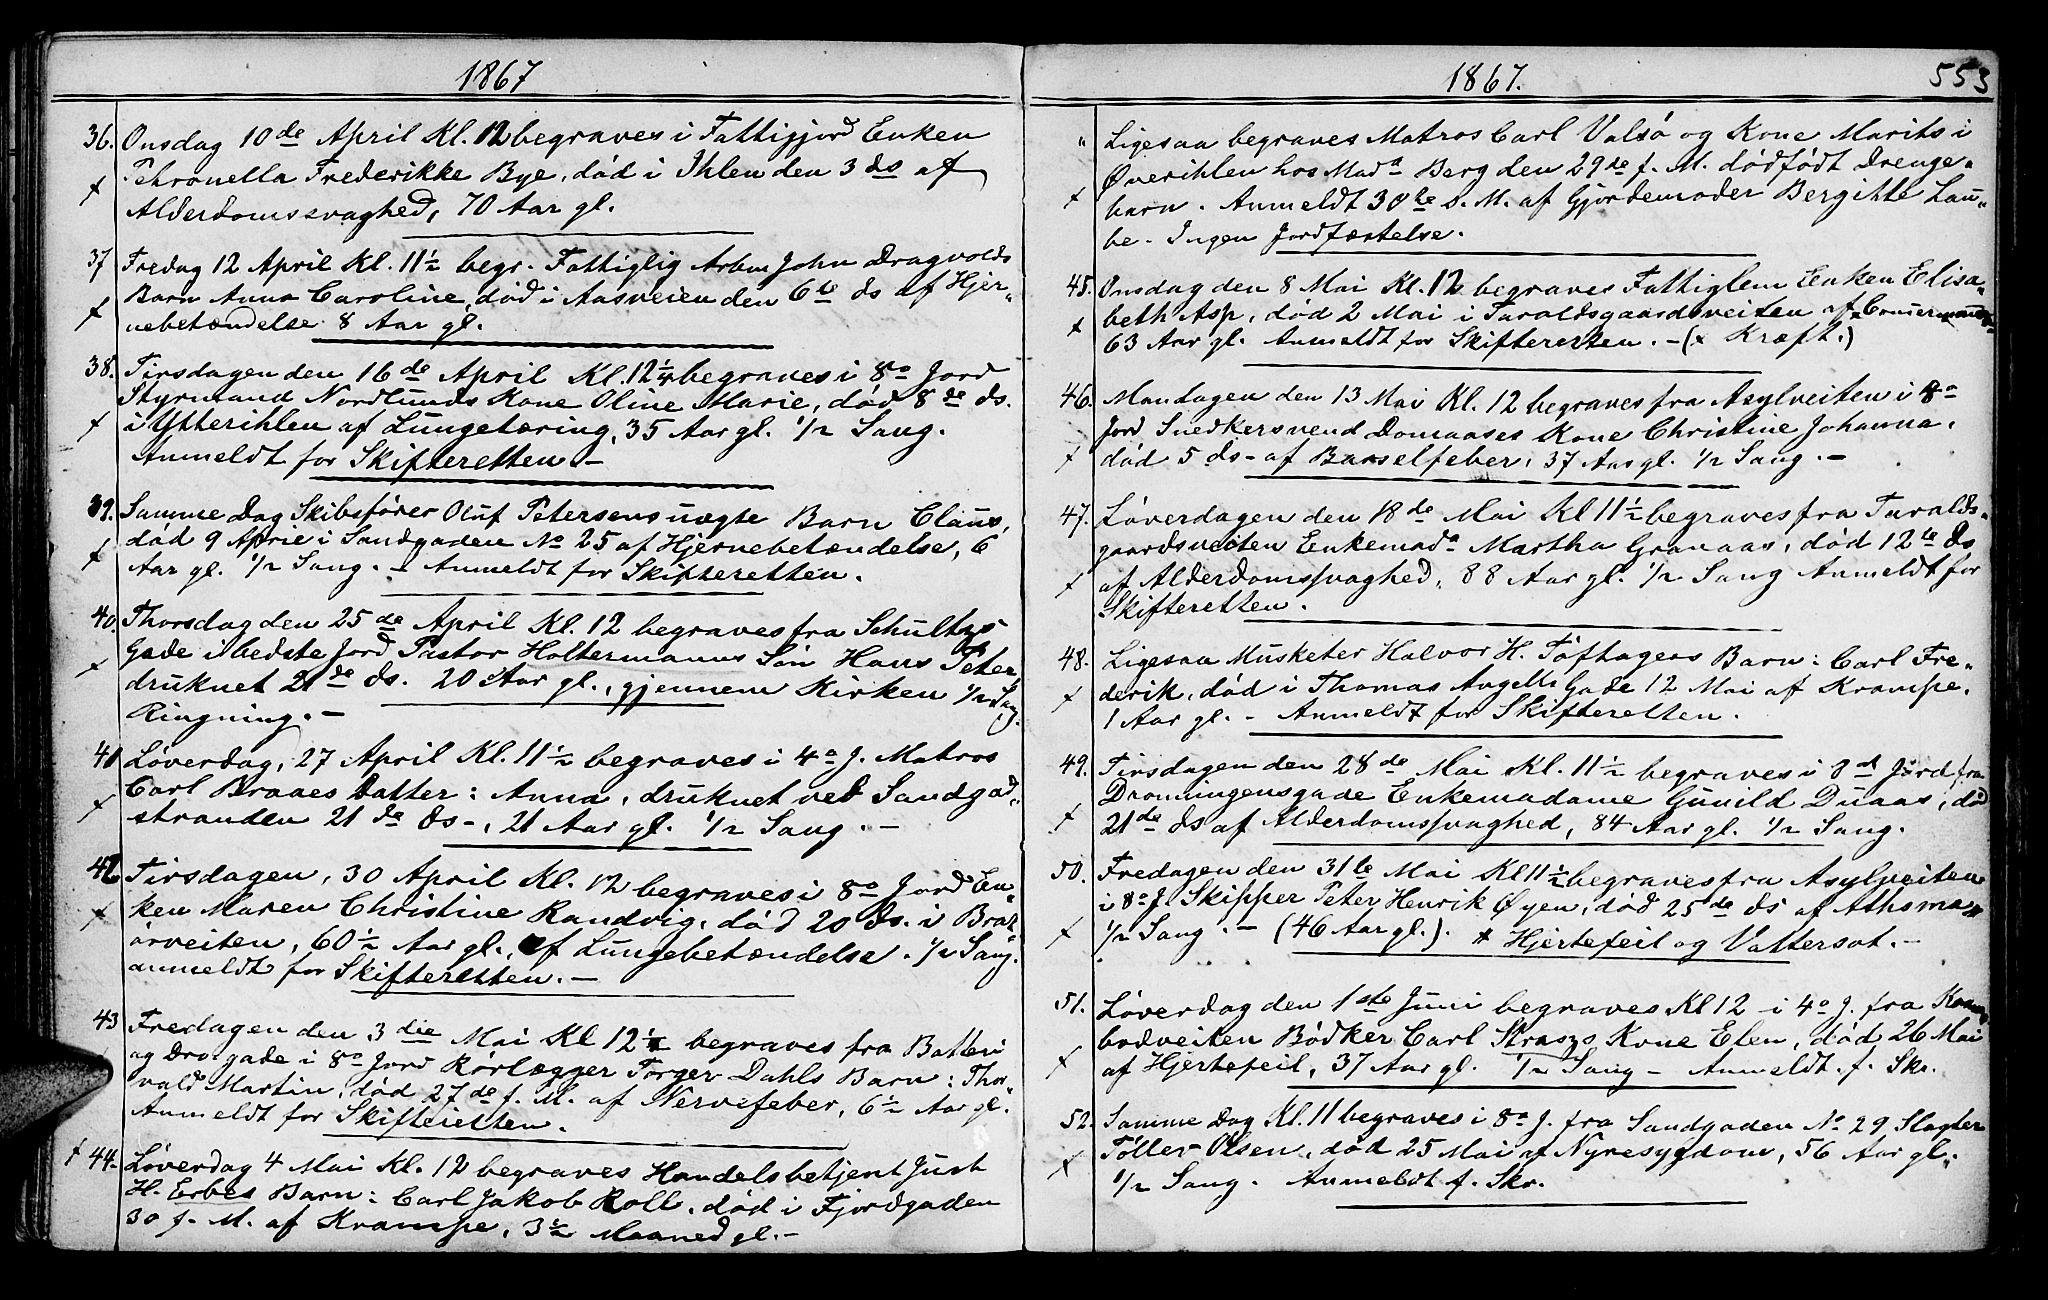 1867
36. Onsdag 10de April Kl. 12 begraves i Fattigjord Enken
Petronella Frederikke Bye, død i Ihlen den 3 ds af
Alderdomssvaghed, 70 Aar gl.
37 Fredag 12 April Kl. 11½ begr. Fattiglig Arbm John Dragvolds
Barn Anna Caroline, død i Aasveien den 6te ds af Hjer„
nebetændelse 8 Aar gl.
38. Tirsdagen den 16de April Kl. 12¼ begraves i 8o Jord
Styrmand Nordlunds Kone Oline Marie, død 8de ds.
i Ytterihlen af Lungetæring, 35 Aar gl. ½ Sang.
Anmeldt for Skifteretten –
39. Samme Dag Skibsfører Oluf Petersens uægte Barn Claus,
død 9 April i Sandgaden No 25 af Hjernebetændelse, 6
Aar gl. ½ Sang. – Anmeldt for Skifteretten.
40. Thorsdag den 25de April Kl. 12 begraves fra Schultzs
Gade i bedste Jord Pastor Holtermanns Søn Hans Peter,
druknet 21de ds. 20 Aar gl., gjennem Kirken ½ Sang.
Ringning. –
41 Løverdag, 27 April Kl. 11½ begraves i 4o J. Matros
Carl Braaes Datter: Anna, druknet ved Sandgad„
stranden 21de ds –, 21 Aar gl. ½ Sang. –
42 Tirsdagen, 30 April Kl. 12 begraves i 8o Jord En„
ken Maren Christine Randvig, død 20 ds. i Brat
ørveiten, 60½ Aar gl. af Lungebetændelse. ½ Sang.
anmeldt for Skifteretten. –
43 Fredagen den 3die Mai Kl 12½ begraves fra Batteri
og Drorgade i 8o Jord Rørlægger Torger Dahls Barn: Thor„
vald Martin, død 27de f. M. af Nervefeber, 6½ Aar gl.
Anmeldt for Skifteretten.
44. Løverdag 4 Mai Kl. 12 begraves Handelsbetjent Just
H. Erbes Barn: Carl Jakob Roll, død i Fjordgaden
30 f. M. af Krampe, 3½ Maaned gl. –
1867. 553
„ Ligesaa begraves Matros Carl Valsø og Kone Marits i
Øverihlen hos Mada Berg den 29de f. M. dødfødt Drenge„
barn. Anmeldt 30te s. M. af Gjordemoder Bergitte Lau„
be. Ingen Jordfæstelse.
45. Onsdag den 8 Mai Kl. 12 begraves Fattiglem Enken Elisa„
beth Asp, død 2 Mai i Taraldsgaardsveiten af
63 Aar gl. Anmeldt for Skifteretten. – (x Kræft.)
46. Mandagen den 13 Mai Kl. 12 begraves fra Asylveiten i 8o
Jord Snedkersvend Domaases Kone Christine Johanna,
død 5 ds – af Barselfeber, 37 Aar gl. ½ Sang. –
47. Løverdagen den 18de Mai Kl 11½ begraves fra Taralds„
gaardsveiten Enkemada Martha Granaas, død 12te ds
af Alderdomssvaghed, 88 Aar gl. ½ Sang Anmeldt for
Skifteretten.
48. Ligesaa Musketer Halvor H. Tøftagers Barn: Carl Fre„
derik, død i Thomas Angells Gade 12 Mai af Krampe,
1 Aar gl. – Anmeldt for Skifteretten.
49. Tirsdagen den 28de Mai Kl. 11½ begraves i 8de Jord fra
Dronningensgade Enkemadame Gunild Duaas, død
21de ds af Alderdomssvaghed, 84 Aar gl. ½ Sang.
50. Fredagen den 31te Mai Kl 11½ begraves fra Asylveiten
i 8o J. Skipper Peter Henrik Øyen, død 25de ds af Athsma x
½ Sang. – (46 Aar gl.). x Hjertefeil og Vattersot. –
51. Løverdag den 1ste Juni begraves Kl 12 – i 4o J. fra Kram
bodveiten Bødker Carl Straszs Kone Elen, død 26 Mai
af Hjertefeil, 37 Aar gl. ½ Sang – Anmeldt. f. Skr.
52. Samme Dag Kl. 11 begraves i 8o J. fra Sandgaden No 29 Slagter
Tøller Olsen, død 25 Mai af Nyresygdom, 56 Aar gl.
½ Sang. Anmeldt f. Skr.